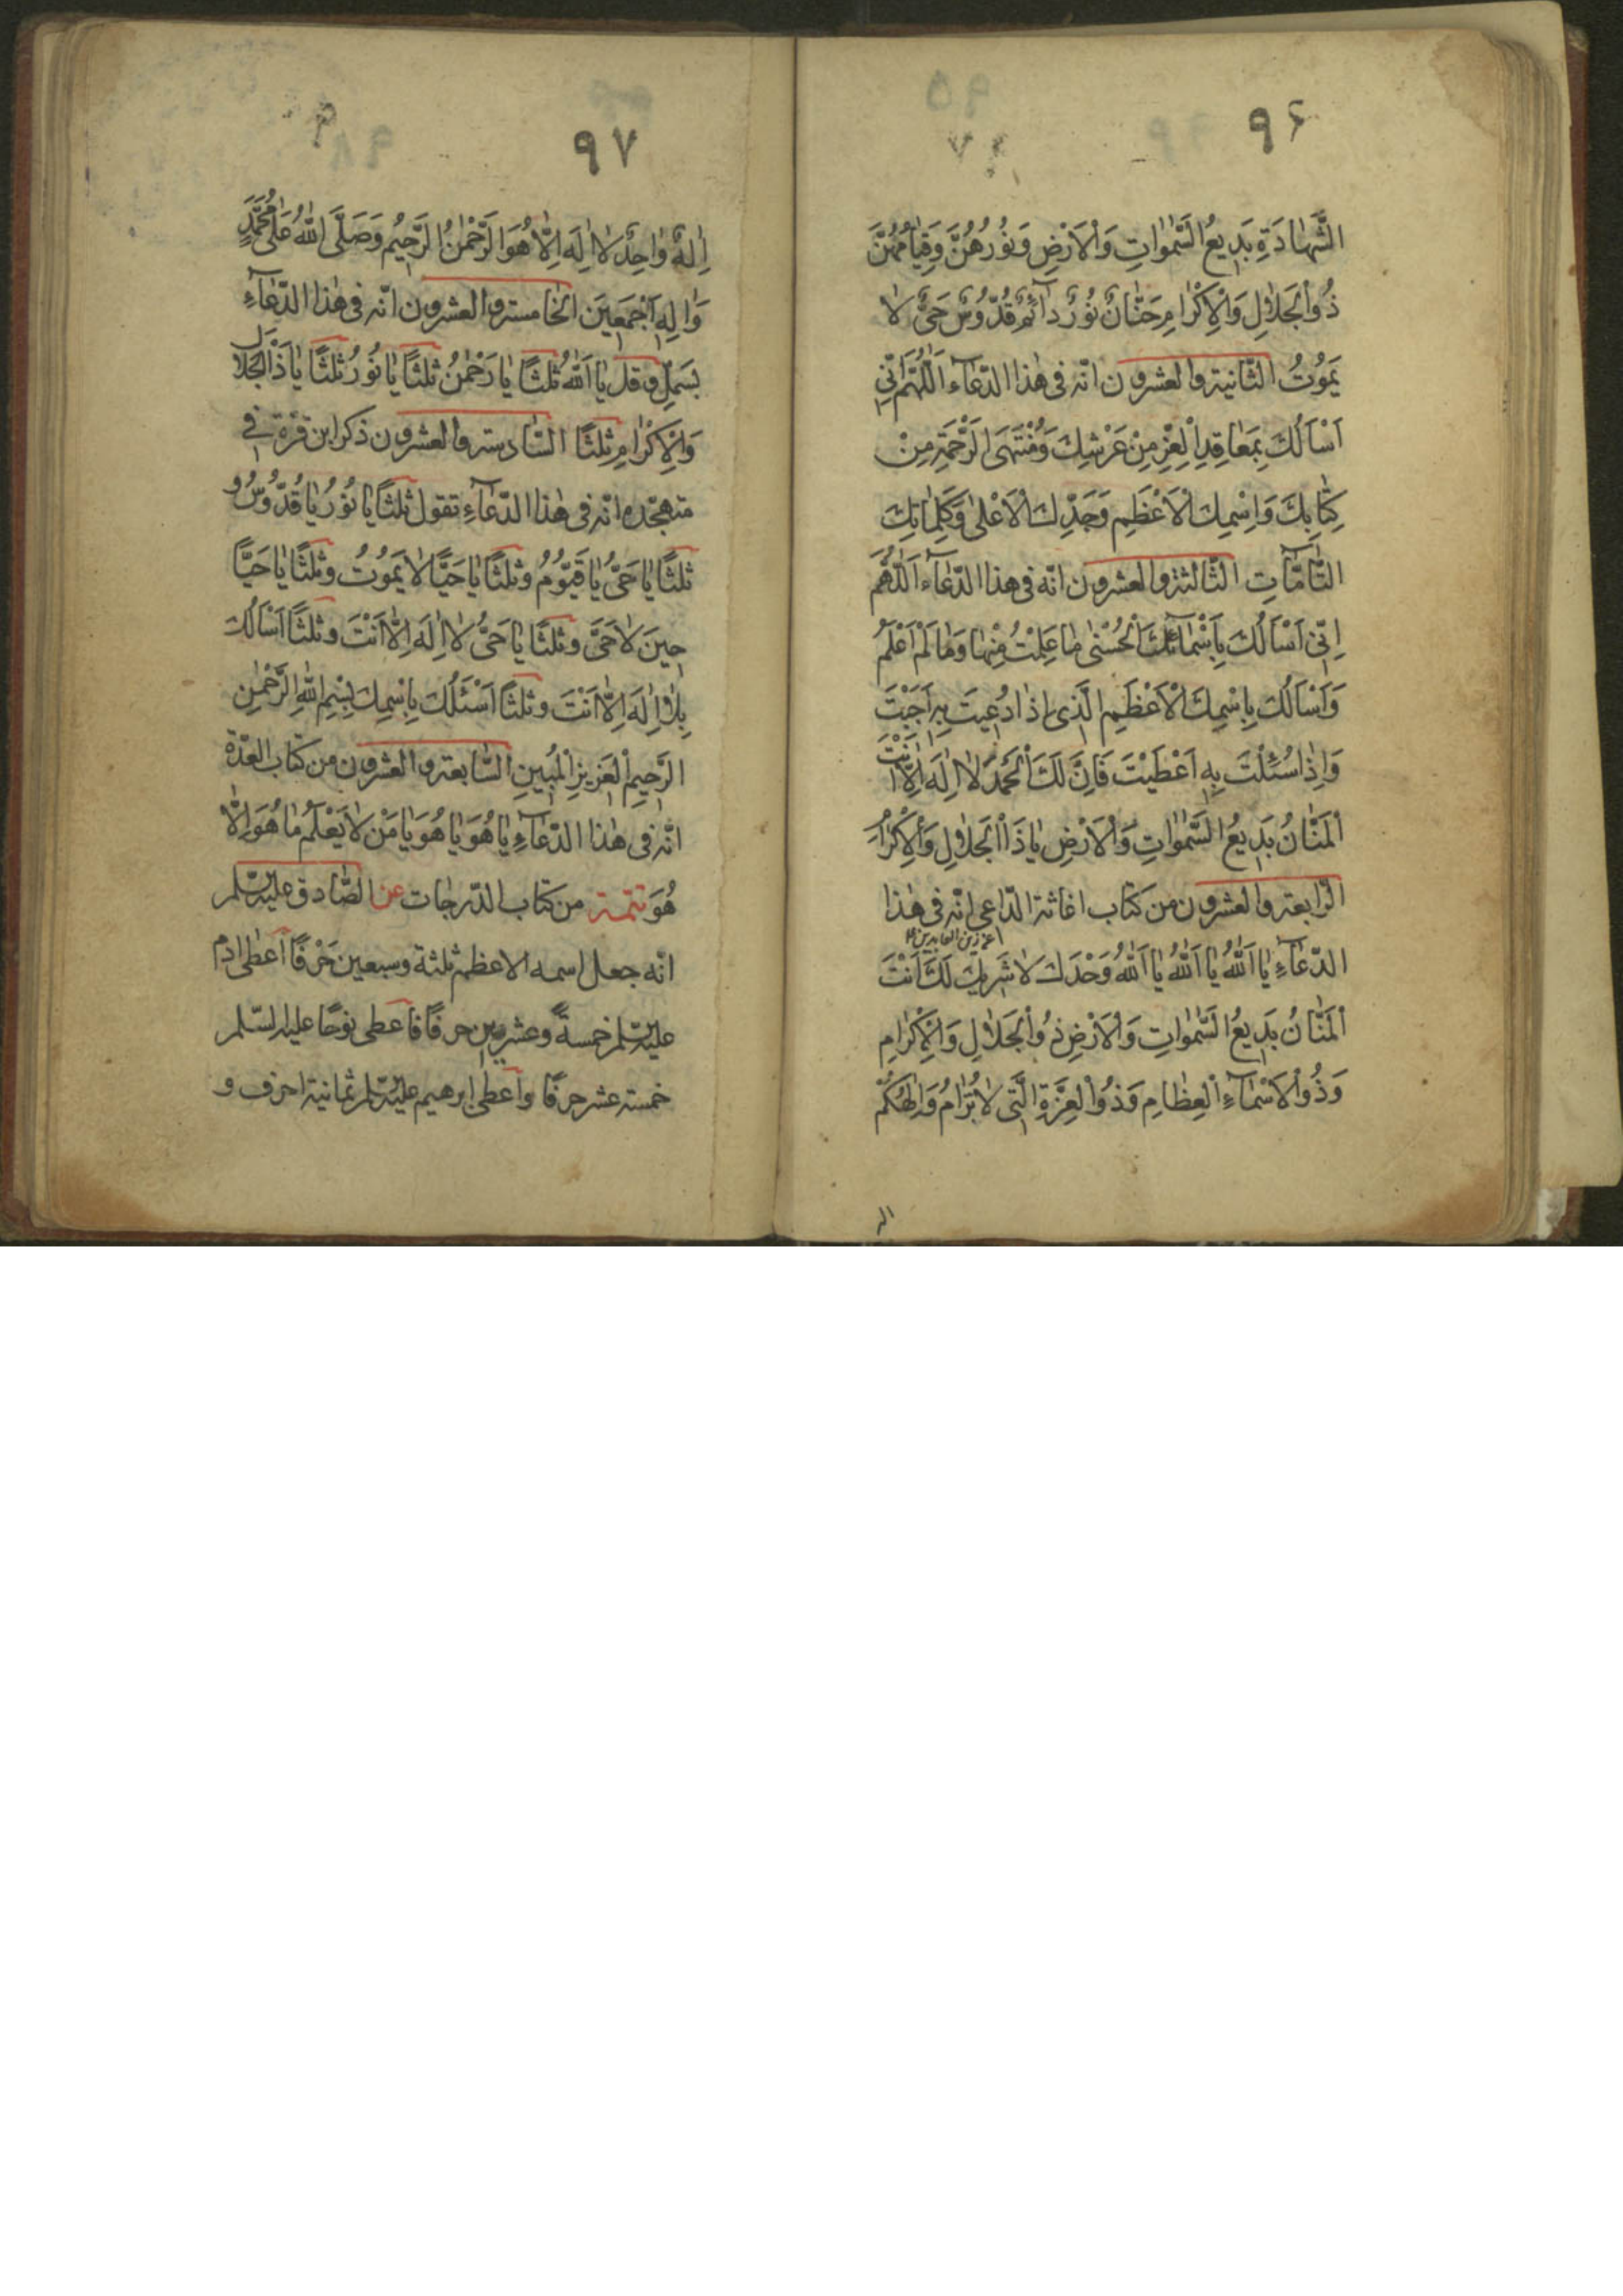 ۹۶
الشَّهَادَةِ بَدِيعُ السَّمٰوَاتِ وَالْاَرْضِ وَنُورُهُنَّ وَقِيَامُهُنَّ
ذُو الْجَلَالِ وَالْاِكْرَامِ حَنَّانٌ نُورٌ دَآئِمٌ قُدُّوسٌ حَيٌّ لَا
يَمُوتُ الثّانية والعشرون انّه فى هٰذا الدّعآء اَللّٰهُمَّ اِنِّى
اَسْاَلُكَ بِمَعَاقِدِ الْعِزِّ مِنْ عَرْشِكَ وَمُنْتَهَى الرَّحْمَةِ مِنْ
كِتَابِكَ وَاِسْمِكَ الْاَعْظَمِ وَجَدِّكَ الْاَعْلٰى وَكَلِمَاتِكَ
التَّآمَّاتِ الثّالثة والعشرون انّه فى هذا الدّعآء اَللّٰهُمَّ
اِنِّى اَسْاَلُكَ بِاَسْمَآئِكَ الْحُسْنٰى مَا عَلِمْتُ مِنْهَا وَمَا لَمْ اَعْلَمْ
وَاَسْاَلُكَ بِاِسْمِكَ الْاَعْظَمِ الَّذِى اِذَا دُعِيتَ بِهِ اَجَبْتَ
وَاِذَا سُئِلْتَ بِهِ اَعْطَيْتَ فَاِنَّ لَكَ الْحَمْدُ لَا اِلٰهَ اِلَّا اَنْتَ
اَلْمَنَّانُ بَدِيعُ السَّمٰوَاتِ وَالْاَرْضِ يَا ذَا الْجَلَالِ وَالْاِكْرَامِ
الرّابعة والعشرون من كتاب اغاثة الدّاعى انّه فى هٰذا
الدّعَآءِ يَا اَللّٰهُ يَا اَللّٰهُ يَا اَللّٰهُ وَحْدَكَ لَا شَرِيكَ لَكَ اَنْتَ
اَلْمَنَّانُ بَدِيعُ السَّمٰوَاتِ وَالْاَرْضِ ذُو الْجَلَالِ وَالْاِكْرَامِ
وَذُو الْاَسْمَآءِ الْعِظَامِ وَذُو الْعِزَّةِ الَّتِى لَا تُرَامُ وَاِلٰهُكُمْ
۹۷
اِلٰهٌ وَاحِدٌ لَا اِلٰهَ اِلَّا هُوَ الرَّحْمٰنُ الرَّحِيمُ وَصَلَّى اللّٰهُ عَلٰى مُحَمَّدٍ
وَاٰلِهِ اَجْمَعِينَ الخامسة والعشرون انّه فى هٰذا الدّعَآءِ
بسمل وقل يَا اَللّٰهُ ثلثًا يَا رَحْمٰنُ ثلثًا يَا نُورُ ثلثًا يَا ذَا الْجَلَالِ
وَالْاِكْرَامِ ثلثًا السّادسة والعشرون ذكر ابن قرة فى
متهجّده انّه فى هٰذا الدّعَآءِ تقول ثلثًا يَا نُورُ يَا قُدُّوسُ و
ثلثًا يَا حَىُّ يَا قَيُّومُ وثلثًا يَا حَيًّا لَا يَمُوتُ وثلثًا يَا حَيًّا
حِينَ لَا حَىَّ وثلثًا يَا حَىُّ لَا اِلٰهَ اِلَّا اَنْتَ وثلثًا اَسْاَلُكَ
بِلَا اِلٰهَ اِلَّا اَنْتَ وثلثًا اَسْئَلُكَ بِاِسْمِكَ بِسْمِ اللّٰهِ الرَّحْمٰنِ
الرَّحِيمِ الْعَزِيزِ الْمُبِينِ السّابعة والعشرون من كتاب العدّة
انّه فى هٰذا الدّعَآءِ يَا هُوَ يَا هُوَ يَا مَنْ لَا يَعْلَمُ مَا هُوَ اِلَّا
هُوَ تتمة من كتاب الدّرجات عن الصّادق عليه السّلم
انّه جعل اسمه الاعظم ثلثة وسبعين حَرْفًا اَعطى ادم
عليه السّلم خمسةً وعشرين حرفًا فاَعطى نوحًا عليه السّلم
خمسة عشر حرفًا واَعطى ابرهيم عليه السّلم ثمانية احرف و